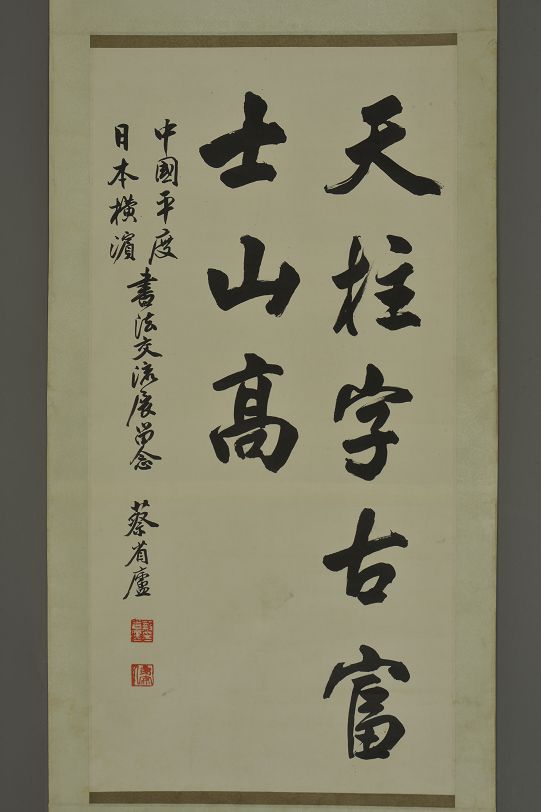 天柱字古富
士山高
中國平度
日本橫濱
書法交流展留念
蔡省廬